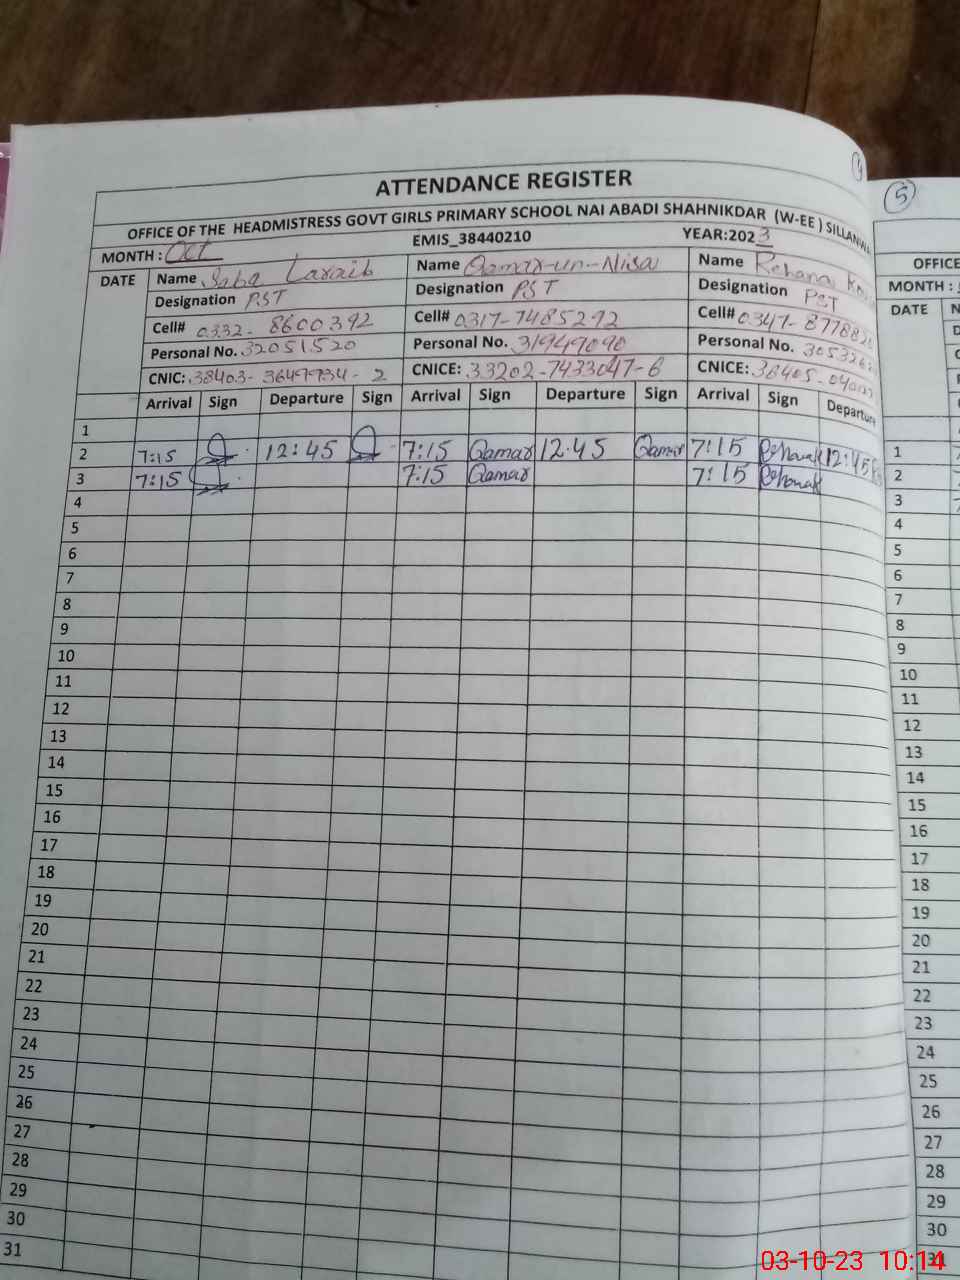 4
ATTENDANCE REGISTER
5
OFFICE OF THE HEADMISTRESS GOVT GIRLS PRIMARY SCHOOL NAI ABADI SHAHNIKDAR (W-EE ) SILLANWA
MONTH : Oct EMIS_38440210 YEAR:2023
DATE Name Saba Laraib Name Qamar-un-Nisa Name Rehana
Designation PST Designation PST Designation PST
Cell# 0332- 8600392 Cell# 0317-7485292 Cell# 0347-87788
Personal No. 32051520 Personal No. 31949090 Personal No. 305326
CNIC: 38403- 3649934- 2 CNICE: 33202-7433047-6 CNICE: 38405-
Arrival Sign Departure Sign Arrival Sign Departure Sign Arrival Sign Departure
1
2 7:15 12:45 7:15 Qamar 12.45 Qamar 7:15 12:45
3 7:15 7:15 Qamar 7:15
4
5
6
7
8
9
10
11
12
13
14
15
16
17
18
19
20
21
22
23
24
25
26
27
28
29
30
31
OFFICE
MONTH :
DATE
1
2
3
4
5
6
7
8
9
10
11
12
13
14
15
16
17
18
19
20
21
22
23
24
25
26
27
28
29
30
03-10-23 10:14